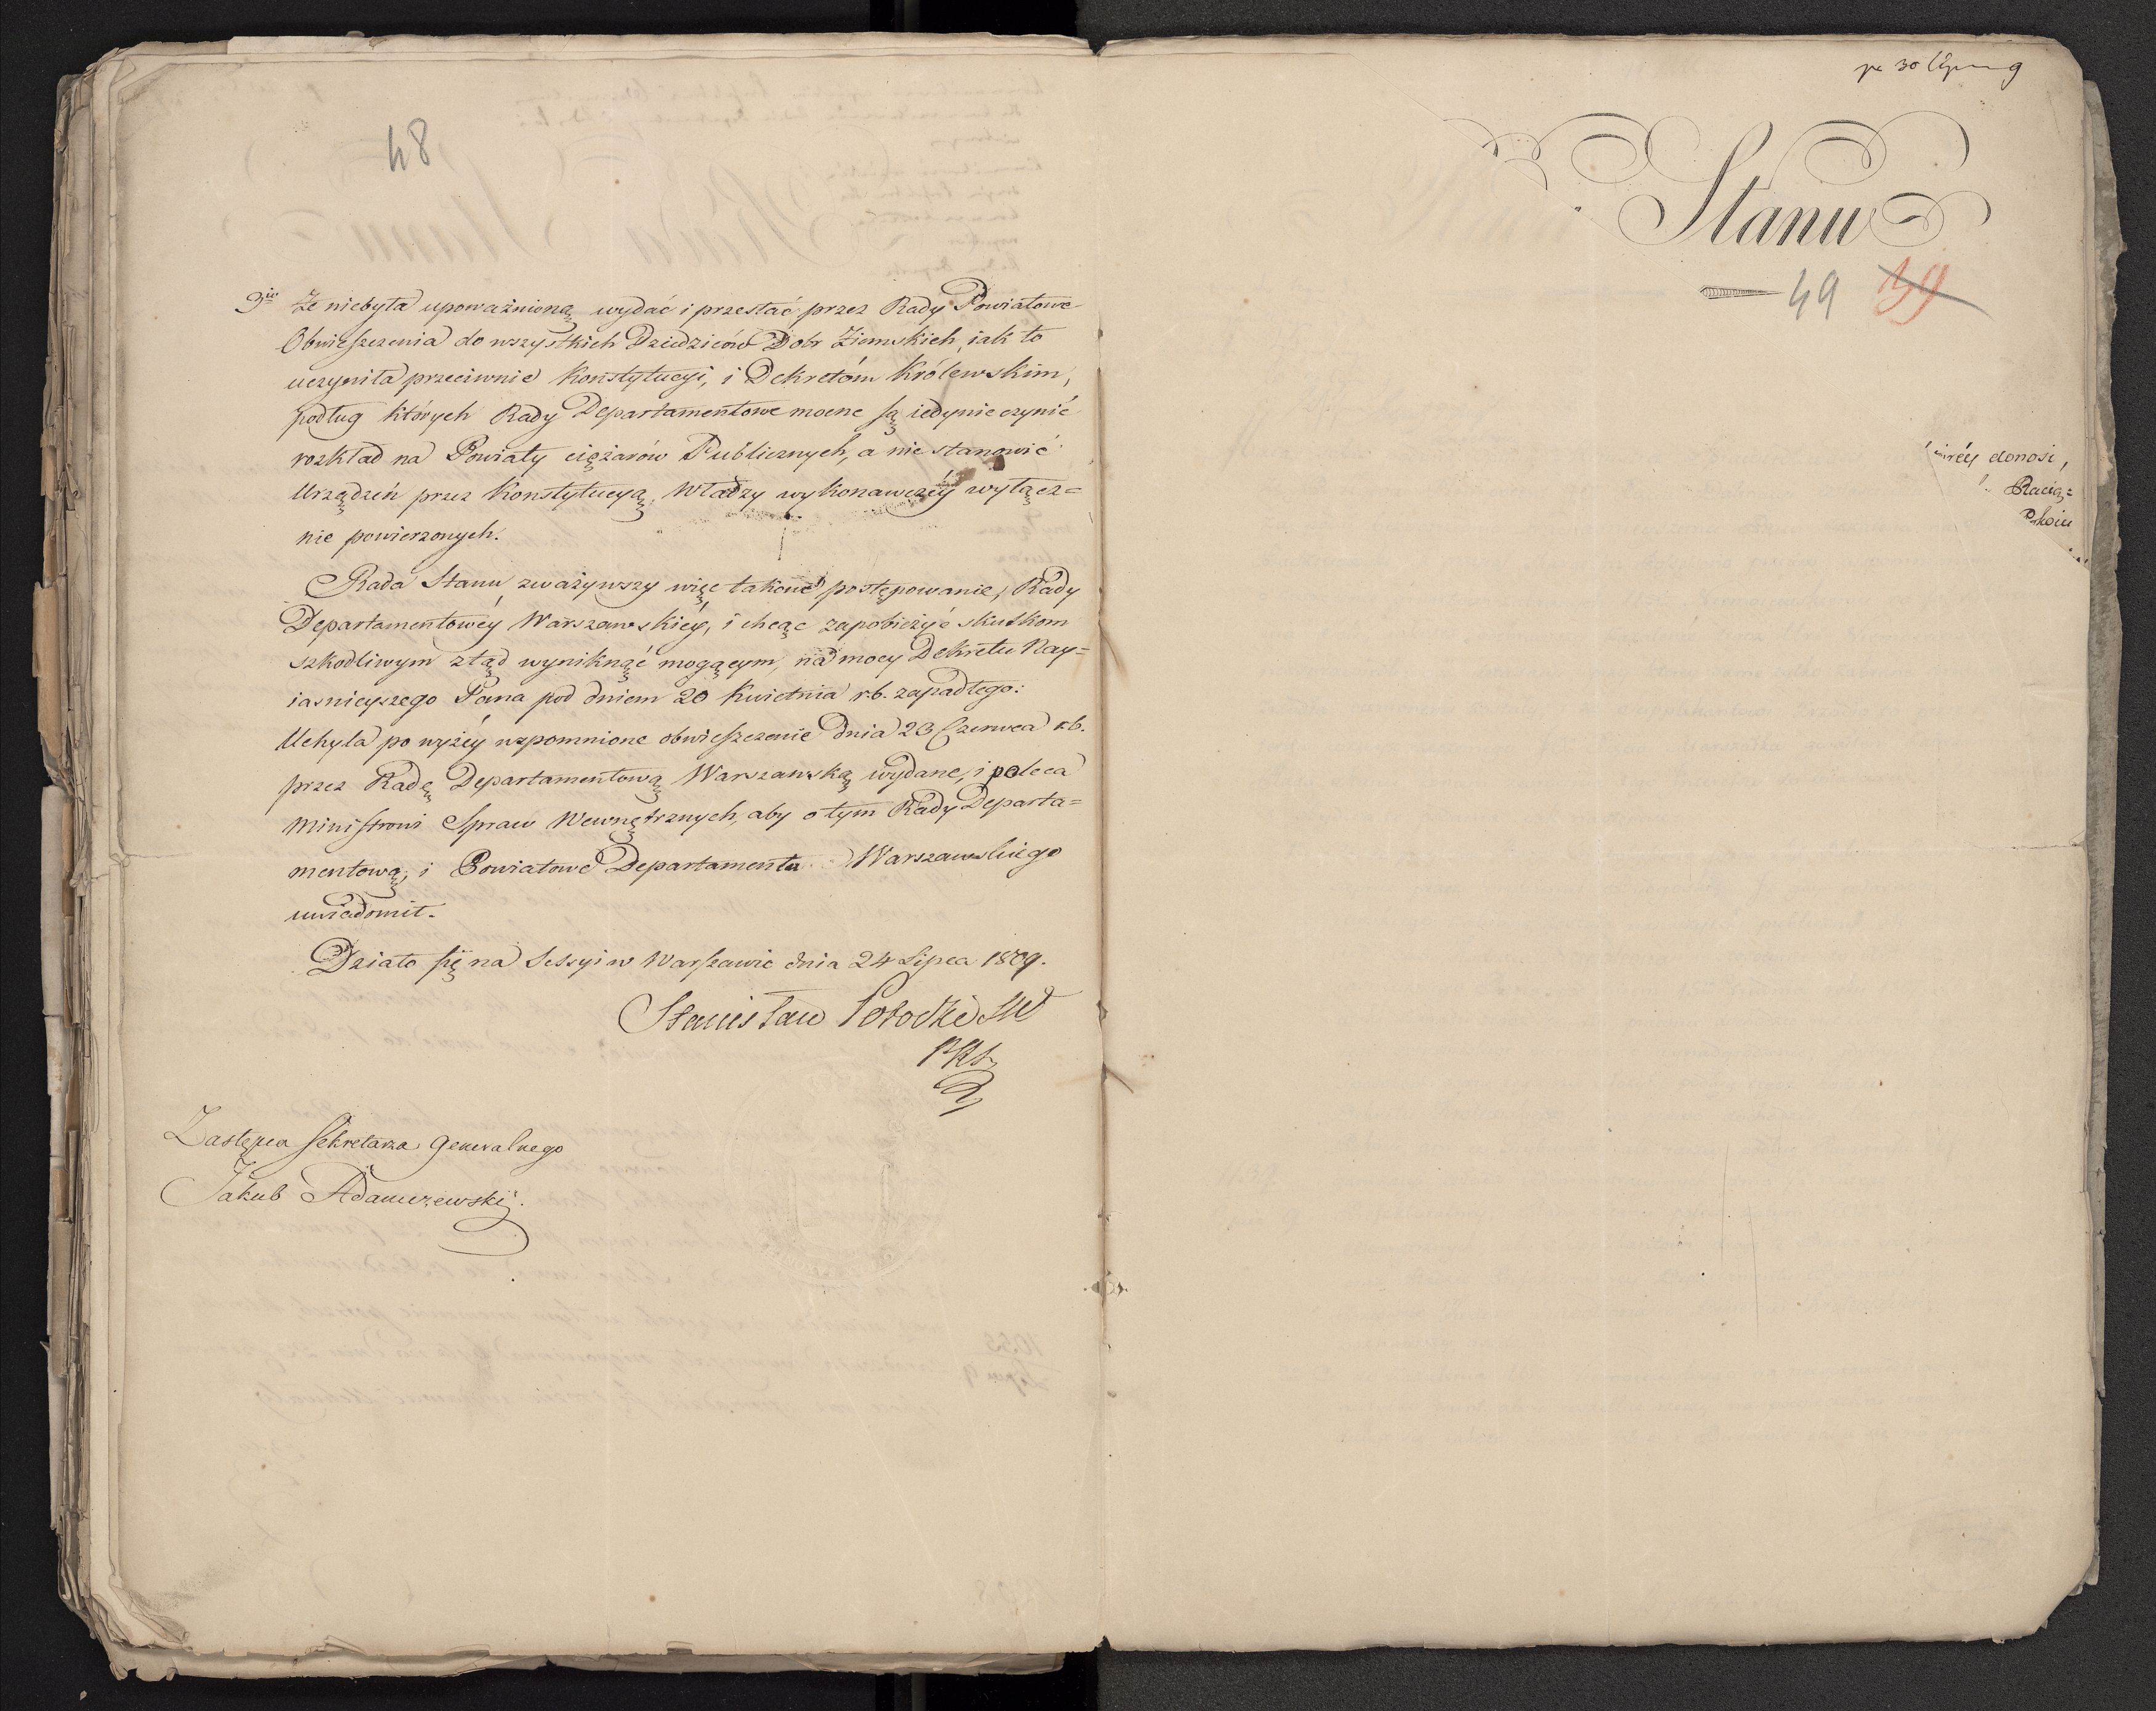 48
3io Że niebyła upoważnioną wydać i przesłać przez Rady Powiatowe
Obwieszczenia do wszystkich Dziedziców Dobr Ziemskich, iak to
uczyniła przeciwnie Konstytucyi, i Dekretóm Królewskim,
podług których Rady Departamentowe mocne są iedynie czynić
rozkład na Powiaty ciężarów Publicznych, a nie stanowić
Urządzeń przez Konstytucyą, Władzy wykonawczéy wyłącz=
nie powierzonych.
Rada Stanu, zważywszy więc takowé postępowanie, Rady
Departamentowéy Warszawskiéy, i chcąc zapobieżyć skutkom
szkodliwym ztąd wyniknąć mogącym, na mocy Dekretu Nay=
iasnieyszego Pana pod dniem 20 Kwietnia r.b. zapadłego:
Uchyla powyżéy wspomnione obwieszczenie dnia 23 Czerwca r.b.
przez Radę Departamentową Warszawską wydane, i poleca
Ministrowi Spraw Wewnętrznych, aby o tym Rady Departa=
mentową, i Powiatowe Departamentu Warszawskiego
uwiadomił.
Działo się na Sessyi w Warszawie dnia 24 Lipca 1809.
Stanisław Potocki
Zastępca Sekretarza Generalnego
Jakub Adamczewski.
30 lipca 9
Stanu
49 39
donosi,
Racią=